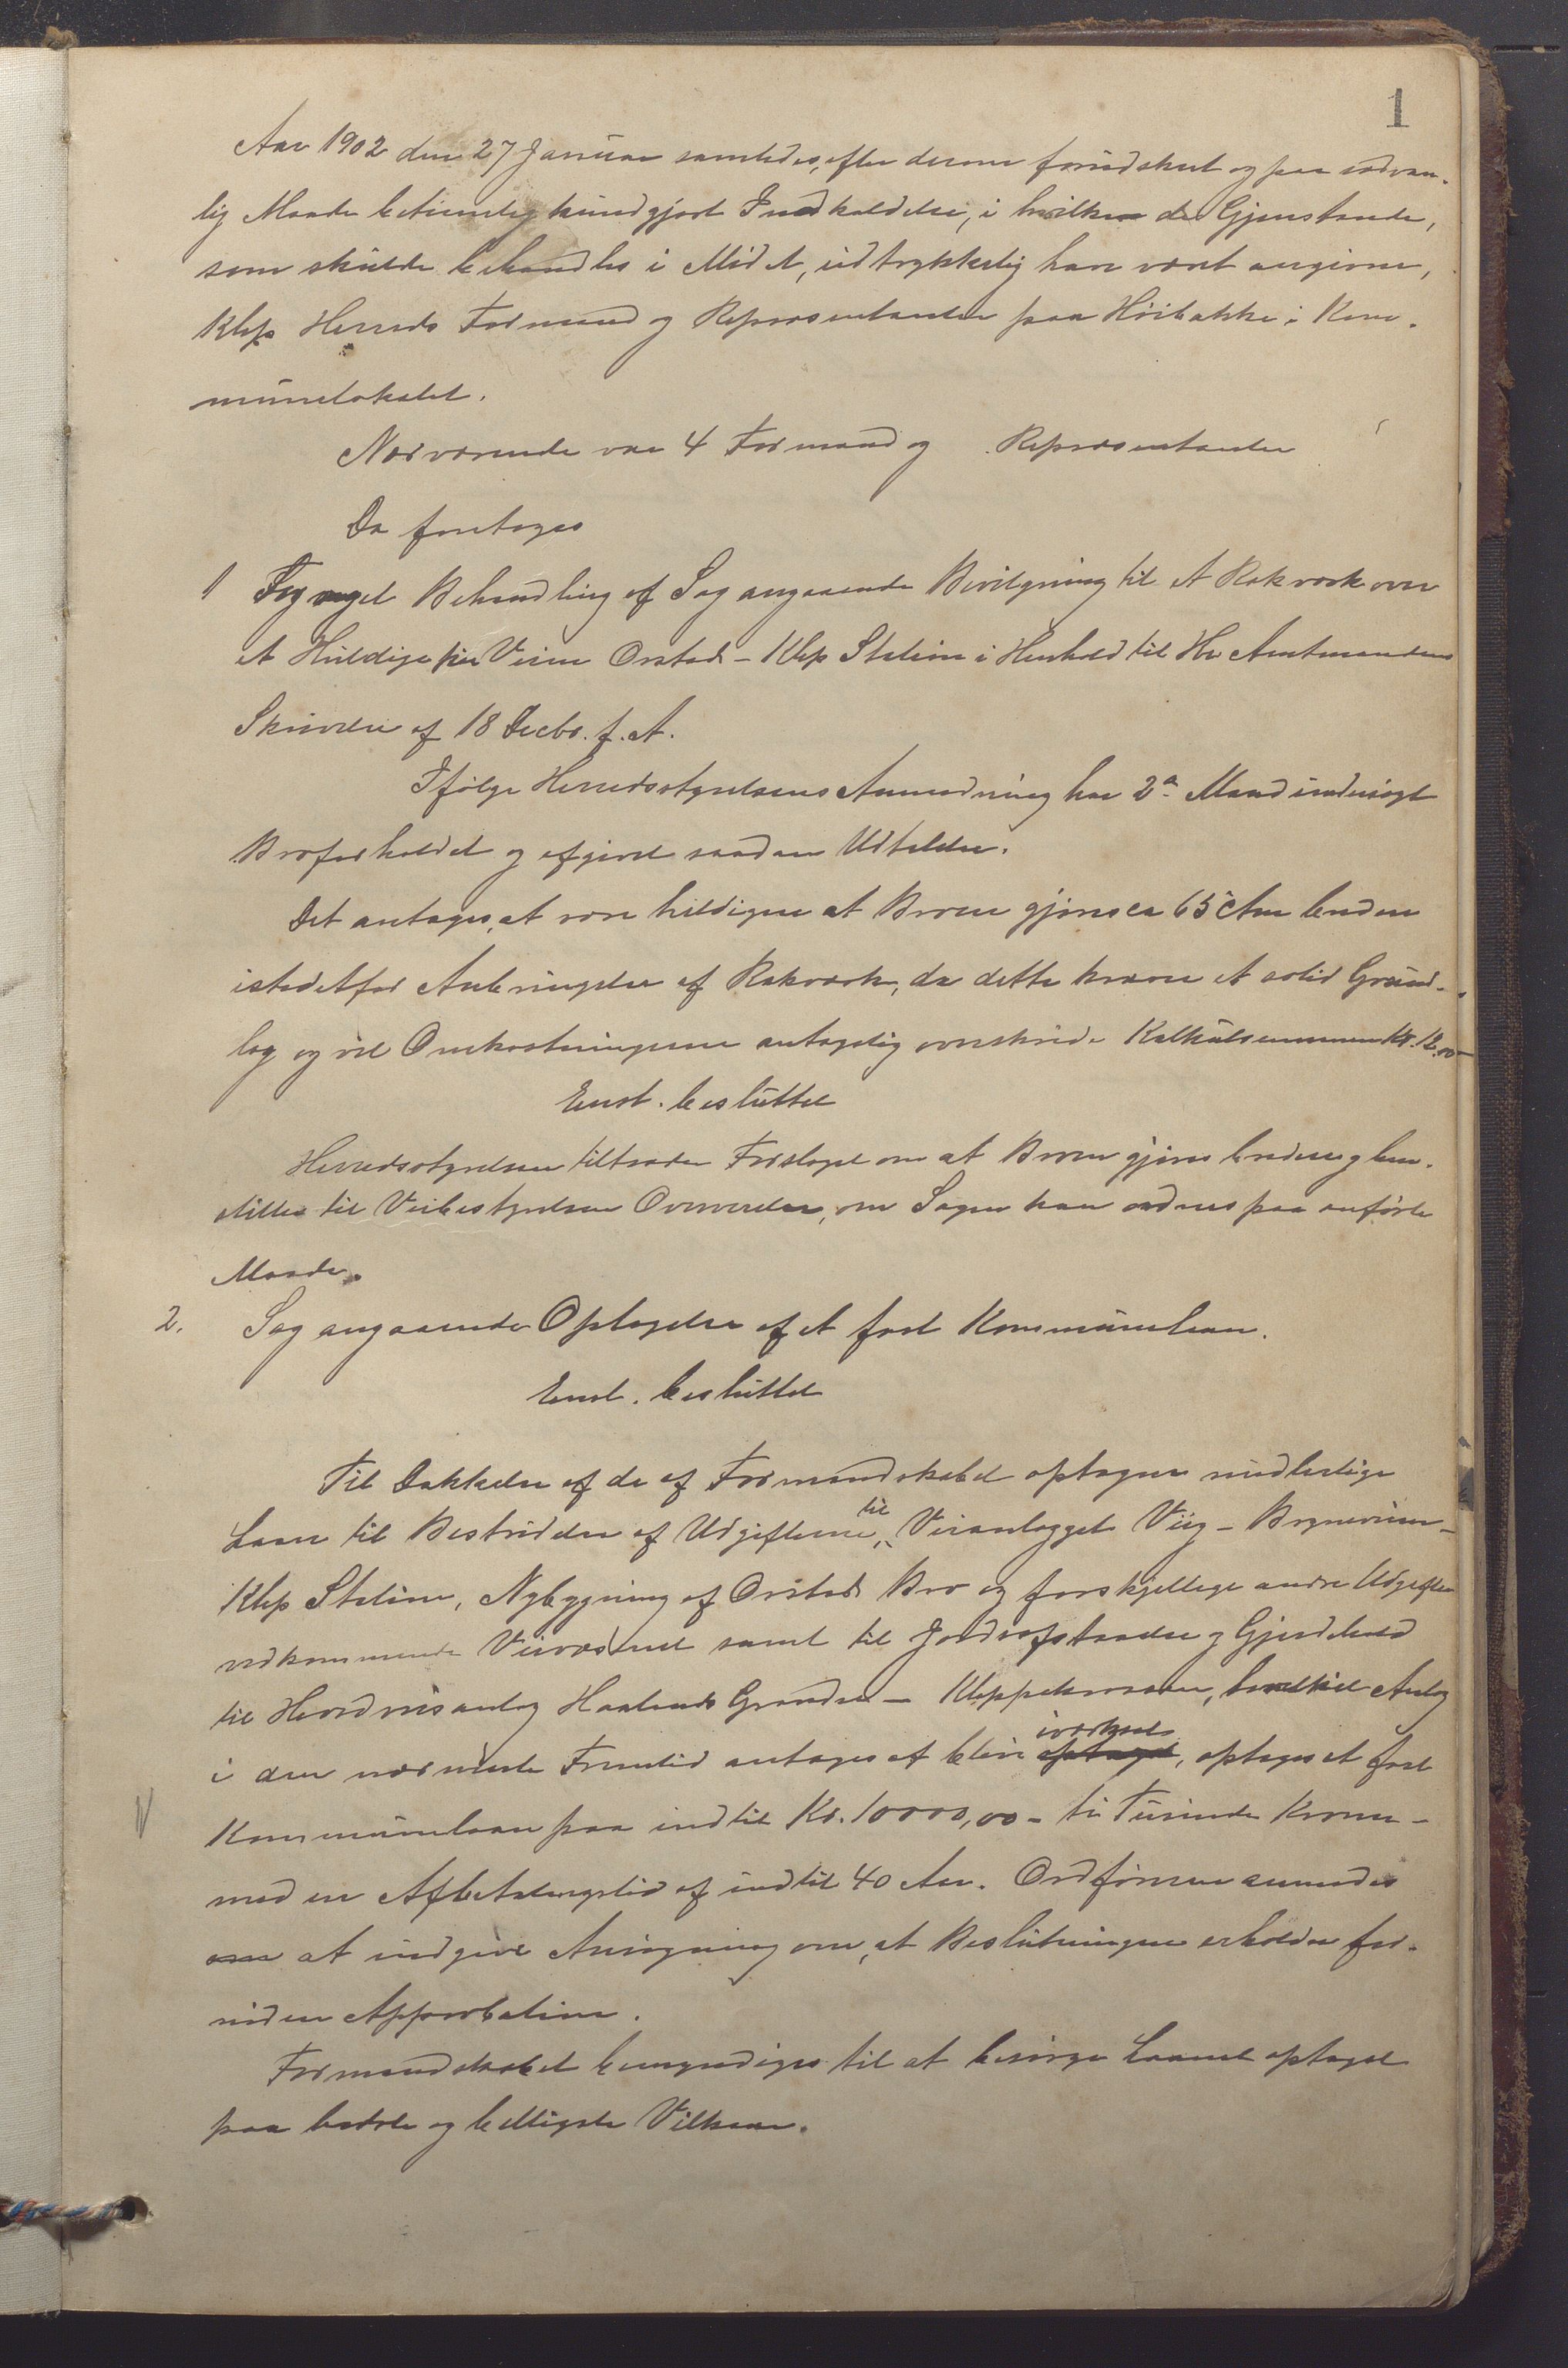 1
Aar 1902 den 27 Januar samledes, efter derom forudskeet og paa sedvan-
lig Maade betimelig kundgjort Indkaldelse, i hvilken de Gjenstande,
som skulde behandles i Mødet, udtrykkelig have været angivne,
Klep Herreds Formænd og Repræsentanter paa Høibakke i Kom-
munelokalet.
Nærværende var 4 Formænd og Repræsentanter
Da foretoges
1 Fornyet Behandling af Sag angaaende Bevilgning til et Rækværk over
et paa Veien Orstad - Klep Station i Henhold til Hr Amtmandens
Skrivelse af 18 Decbr. f. A.
Ifølge Herredsstyrelsens Anmodning har 2de Mænd undersøgt
Broforholdet og afgivet saadan Udtalelse.
Det antages, at være heldigere at Broen gjøres ca 65 Ctm bredere
istedetfor Anbringelse af Rækværk, da dette kræver et solid Grund-
lag og vil Omkostningerne antagelig overskride Kalkulsummen Kr. 12.00 -
Enst. besluttet
Herredsstyrelsen tiltræder Forslaget om at Broen gjøres bredere og hen-
stilles til Veibestyrelsen Overveielse, om Sagen kan ordnes paa anførte
Maade.
2. Sag angaaende Optagelse af et fast Kommunelaan.
Enst. besluttet
Til Dækkelse af de af Formandskabet optagne midlertidige
Laan til Bestridelse af Udgifterne til Veianlægget Viig - Bryneveien -
Klep Station, Nybygning af Orstad Bro og forskjellige andre Udgifter
vedkommende Veivæsenet samt til Jordafstaaelse og Gjerdehold
til Hovedveisanlæg Haalands Grændse - Kleppekrossen, hvilket Anlæg
i den nærmeste Fremtid antages at blive optaget iværksat, optages et fast
Kommunelaan paa indtil Kr. 10000,00 - ti Tusinde Kroner -
med en Afbetalingstid af indtil 40 Aar. Ordføreren anmodes
om at indgive Ansøgning om, at Beslutningen erholder for-
nøden Approbation.
Formandskabet bemyndiges til at besørge Laanet optaget
paa bedste og billigste Vilkaar.